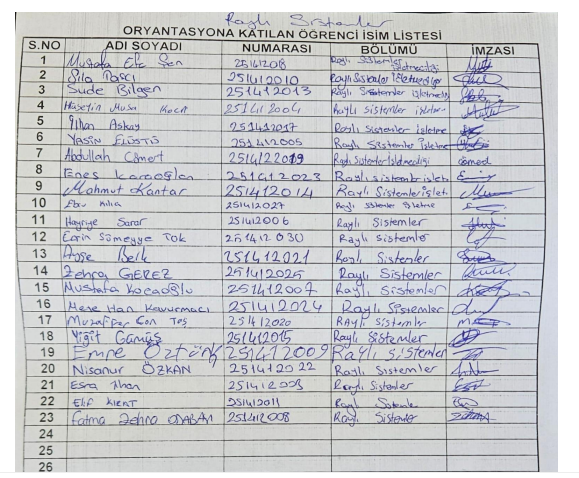 Raylı Sistemler
ORYANTASYONA KATILAN ÖĞRENCİ İSİM LİSTESİ
S.NO ADI SOYADI NUMARASI BÖLÜMÜ İMZASI
1 Mustafa Efe Şen 251412018 Raylı Sistemler İşletmeciliği
2 Sıla 251412010 Raylı Sistemler İşletmeciliği
3 Sude Bilgen 251412013 Raylı Sistemler İşletmeciliği
4 Hüseyin Musa Koca 251412004 Raylı Sistemler işletme
5 İlhan Askay 251412017 Raylı Sistemler İşletme
6 YASİN 251412005 Raylı Sistemler İşletme
7 Abdullah Cömert 251412019 Raylı Sistemler İşletmeciliği
8 Enes Karaoğlan 251412023 Raylı sistemler işlet
9 Mahmut Kantar 251412014 Raylı Sistemler işlet.
10 Ebu 251412027 Raylı Sistemler İşletme
11 Hayriye Sarar 251412006 Raylı Sistemler
12 Ecrin Sümeyye Tok 251412030 Raylı Sistemler
13 Ayşe Berk 251412021 Raylı Sistemler
14 Zehra GEREZ 251412025 Raylı Sistemler
15 Mustafa Kocaoğlu 251412007 Raylı Sistemler
16 Mete Han Kavurmacı 251412024 Raylı Sistemler
17 Muzaffer Can Taş 251412020 RAylı Sistemler
18 Yiğit Gümüş 251412015 Raylı Sistemler
19 Emre Öztürk 251412009 Raylı Sistemler
20 Nisanur ÖZKAN 251412022 Raylı Sistemler
21 Esra İlhan 251412003 Raylı Sistemler
22 Elif 251412011 Raylı Sistemler
23 Fatma Zehra ODABAŞ 251412008 Raylı Sistemler
24
25
26